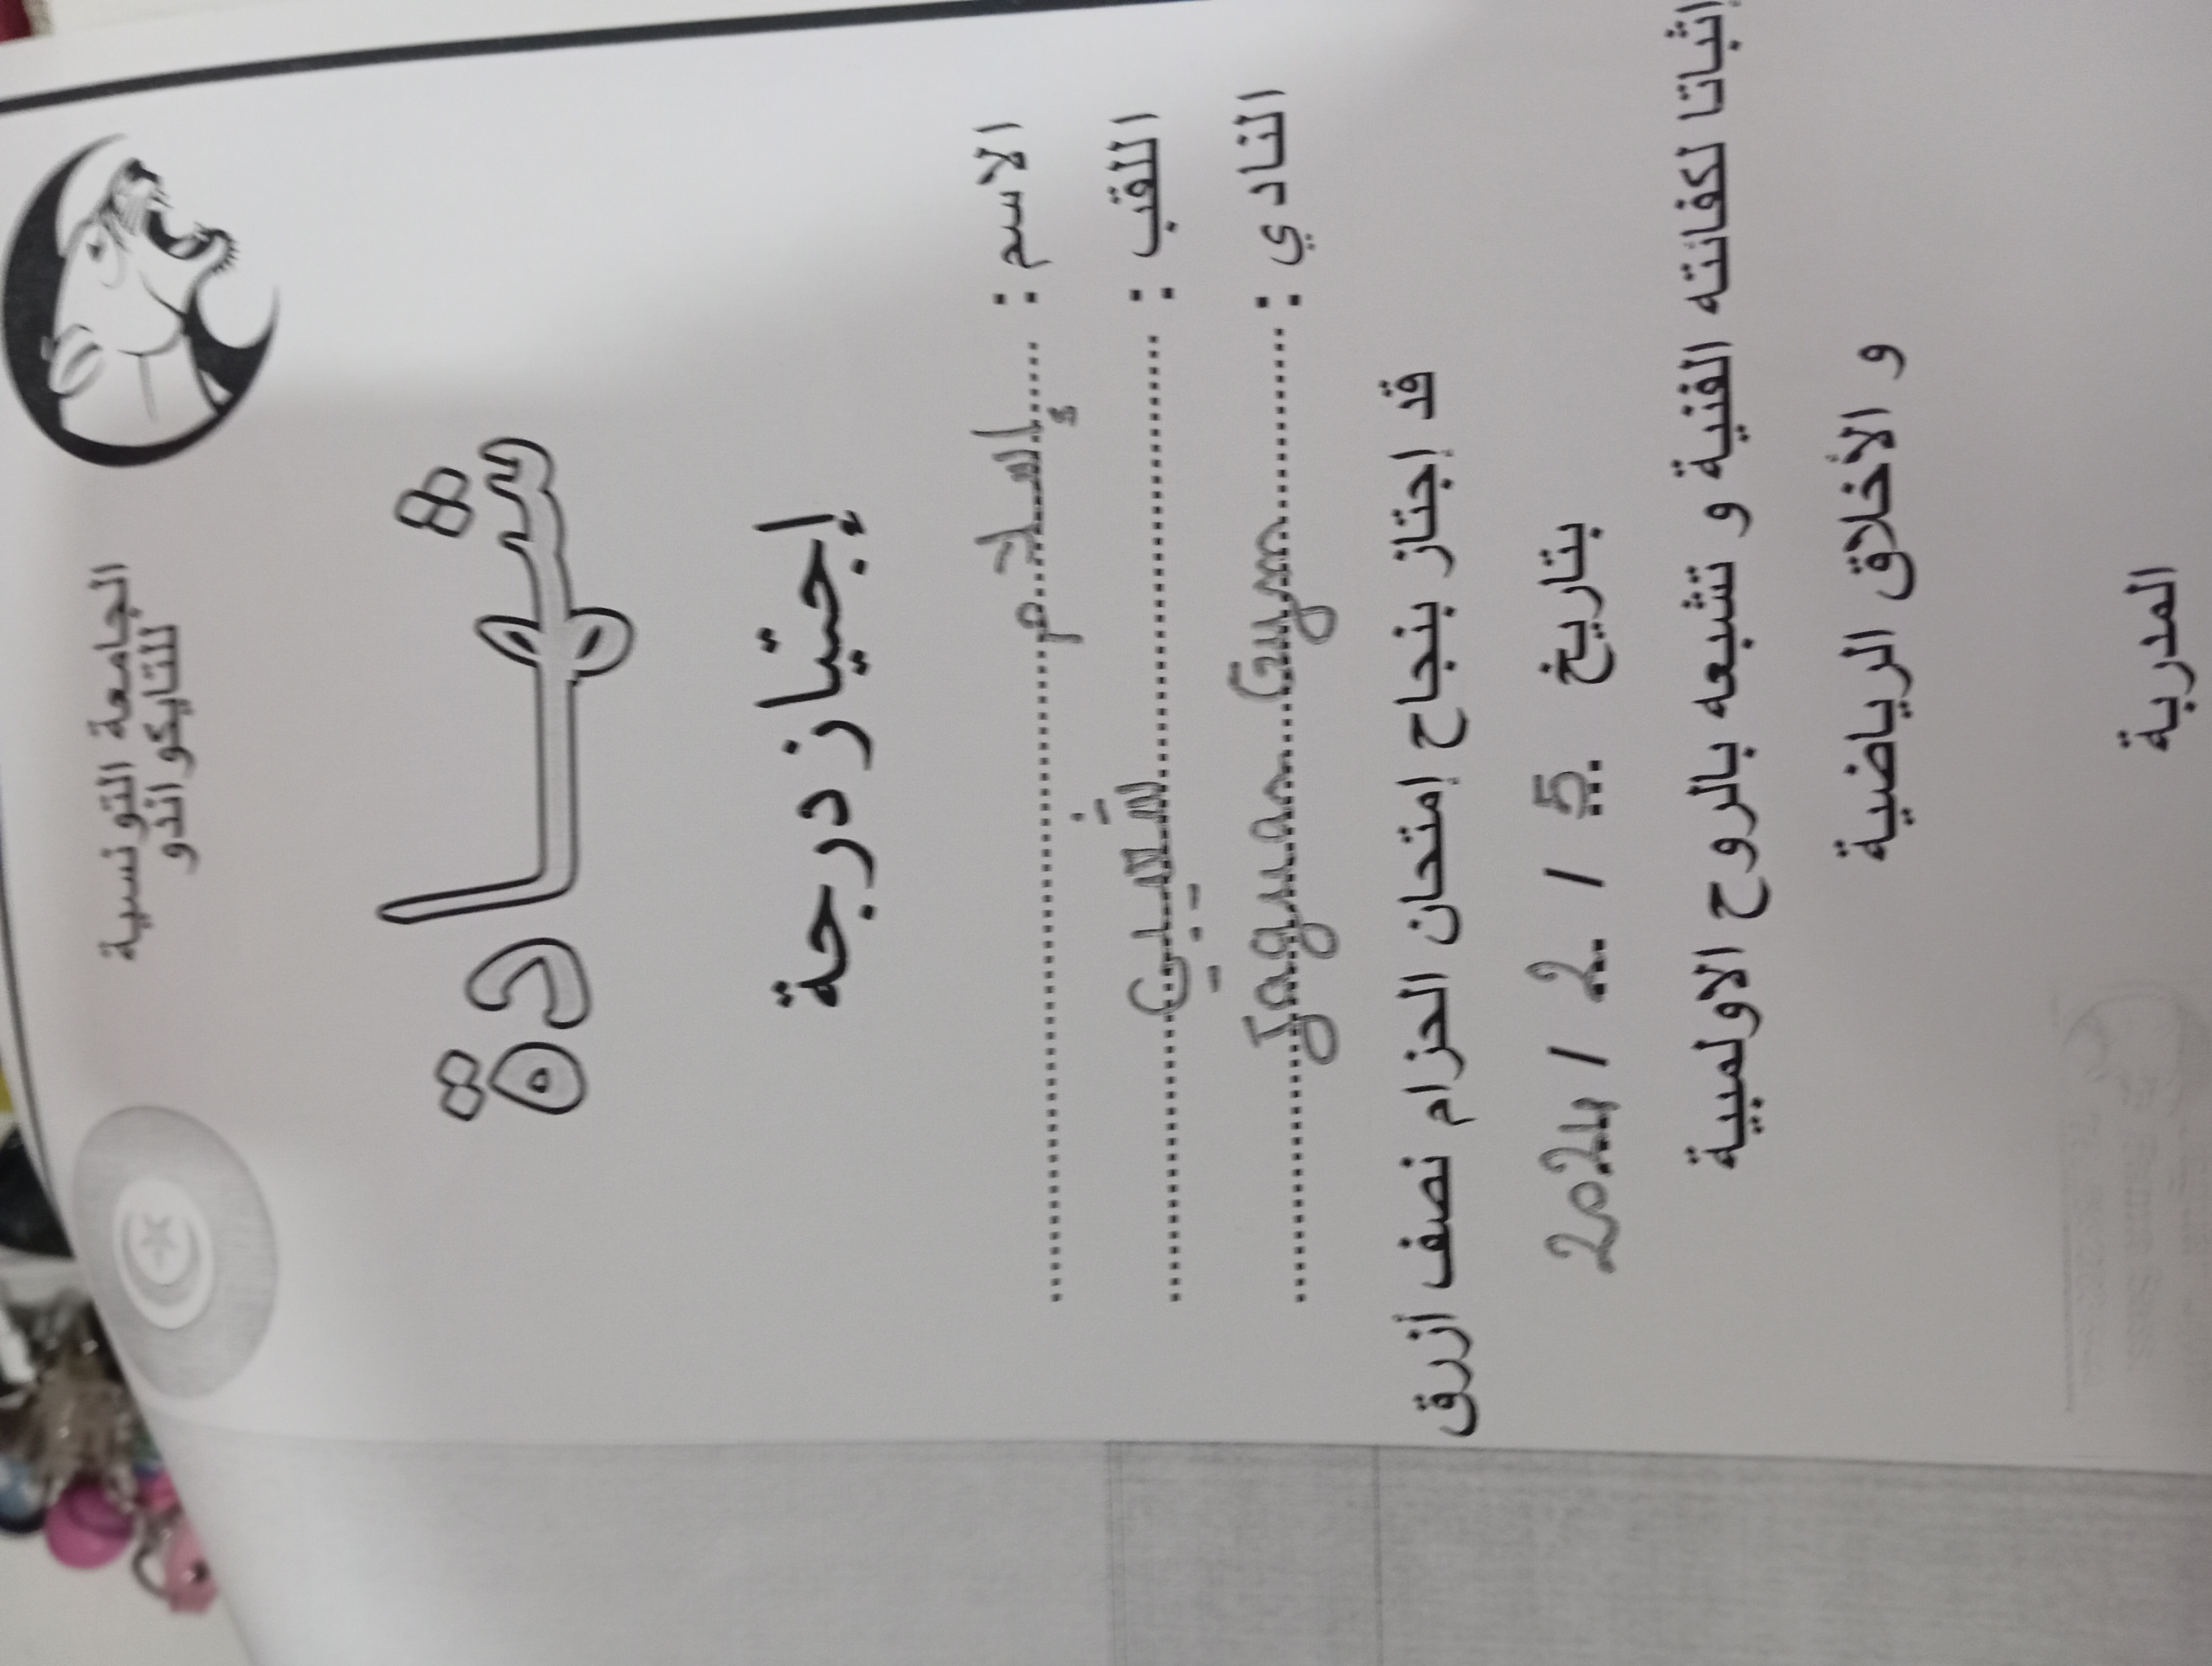 الجامعة التونسية
للتايكواندو
شهادة
إجتياز درجة
الاسم : إسلام
اللقب :
النادي : Jaguar Gym
قد إجتاز بنجاح إمتحان الحزام نصف أزرق
بتاريخ 5 / 2 / 2024
إثباتا لكفائته الفنية و تشبعه بالروح الاولمبية
و الأخلاق الرياضية
المدربة